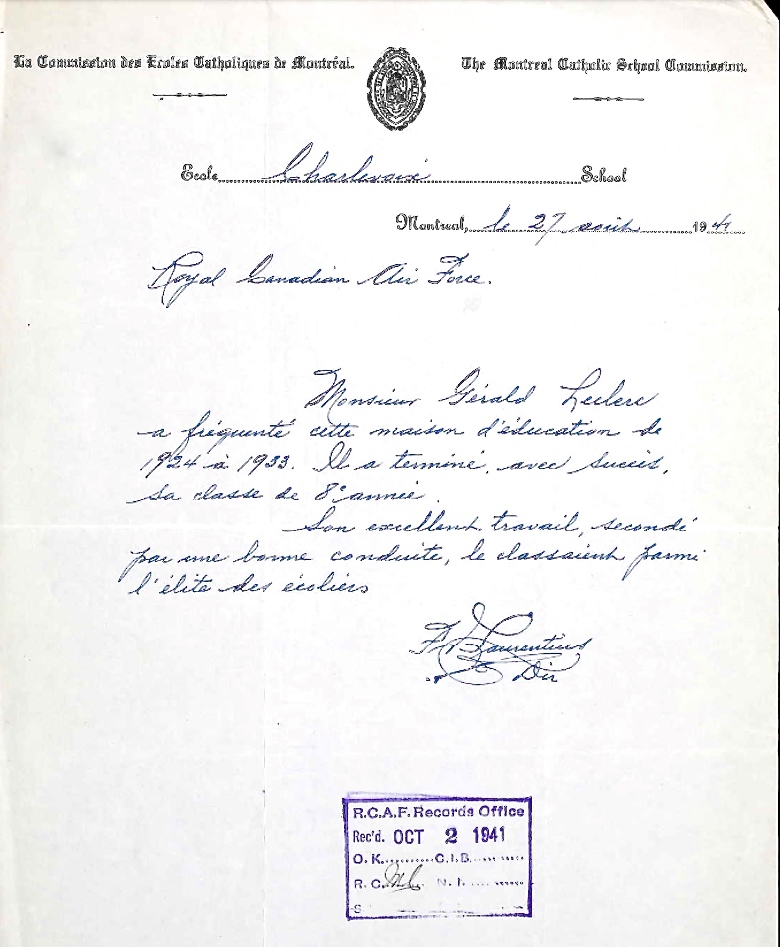 La Commission des Ecoles Catholiques de Montréal.
The Montreal Catholic School Commission.
Ecole Charlevoix School
Montreal, le 27 août 1941
Royal Canadian Air Force.
Monsieur Gérald Leclerc
a fréquenté cette maison d'éducation de
1924 à 1933. Il a terminé, avec succès,
sa classe de 8e année.
Son excellent travail, secondé
par une bonne conduite, le classaient parmi
l'élite des écoliers
F. Laurentius
Dir
R.C.A.F. Records Office
Rec'd. OCT 2 1941
O.K. C.I.B.
R.C. N.I.
S